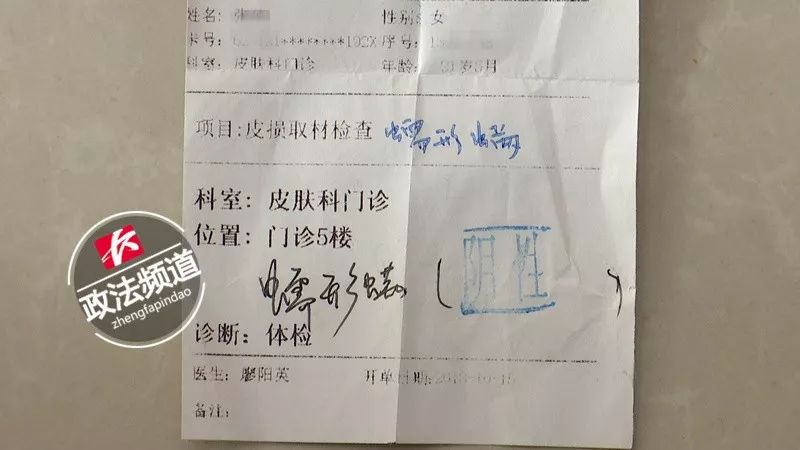 姓名: 张
性别: 女
卡号:
********102X 序号:
科室: 皮肤科门诊
年龄:
岁8月
项目:皮损取材检查 蠕形螨
科室: 皮肤科门诊
位置: 门诊5楼
蠕形螨 ( 阴性 )
诊断: 体检
医生: 廖阳英
开单日期:
备注:
政法频道
zhengfapindao